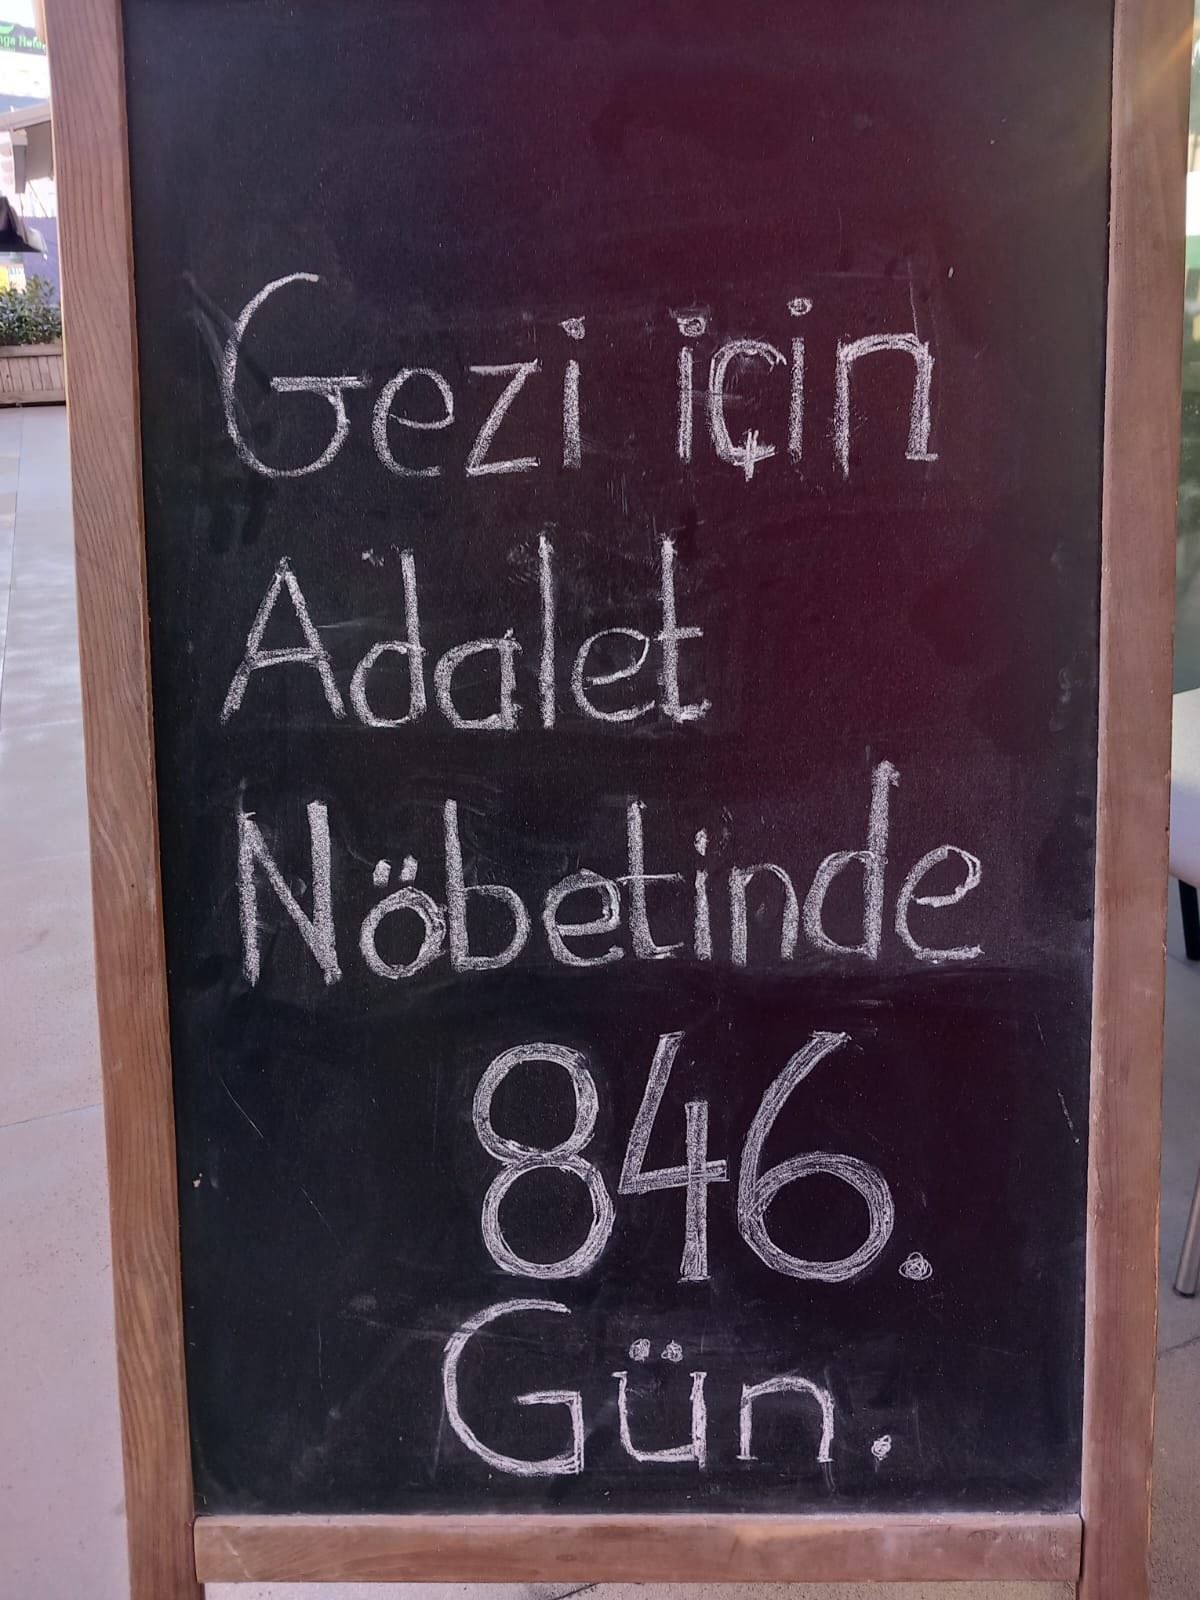 Gezi için
Adalet
Nöbetinde
846.
Gün.